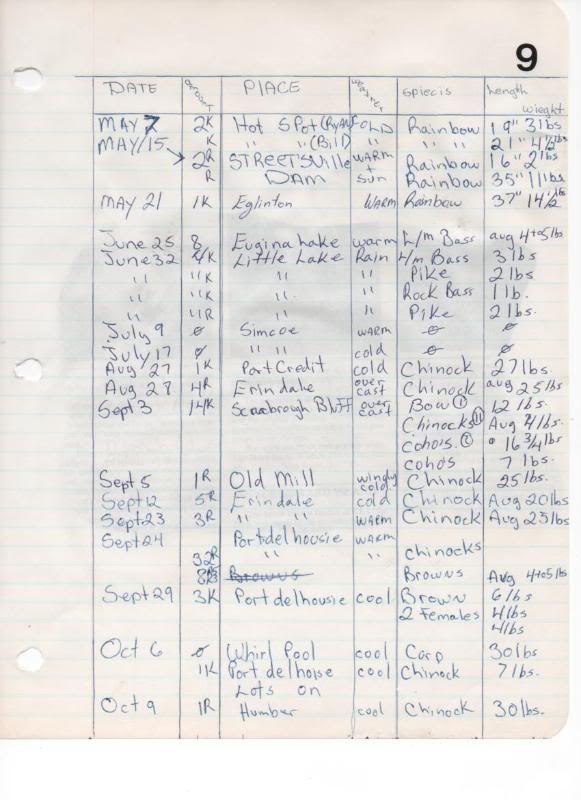 9
DATE amount PlACE weather spiecis Length wieght
MAY 7 2K Hot SPot (RYANS COLD Rainbow 19" 3lbs
MAY/15 K " " (Bill) " " " 21" 4½lbs
2R STREETSville WARM Rainbow 16" 2lbs
R DAM + Sun Rainbow 35" 11lbs
MAY 21 1K Eglinton WARM Rainbow 37" 14½lbs
June 25 8 Eugina Lake warm L/m Bass avg 4to5lbs
June 32 4/K Little Lake Rain L/m Bass 3lbs
" 11K " " Pike 2lbs
" 11K " " Rock Bass 1lb.
" 11R " " Pike 2lbs.
July 9 ø Simcoe WARM ø ø
July 17 ø " " cold ø ø
Aug 27 1K Port Credit cold Chinock 27lbs.
Aug 28 4R Erindale over cast Chinock avg 25lbs
Sept 3 14K Scarbrough Bluff over cast Bow ① 12lbs.
Chinocks ⑪ Avg 4lbs.
cohos. ② 16¾lbs
cohos 7lbs.
Sept 5 1R Old Mill windy cold Chinock 25lbs.
Sept 12 5R Erindale cold Chinock Avg 20lbs
Sept 23 3R " " WARM Chinock Avg 25lbs
Sept 24 Portdelhousie WARM
32R " " chinocks
Browns Browns Avg 4to5lbs
Sept 29 3K Portdelhousie cool Brown 6lbs
2 Females 4lbs
4lbs
Oct 6 ø Whirl Pool cool Carp 30lbs
11K Port delhoise cool Chinock 7lbs.
Lots on
Oct 9 1R Humber cool Chinock 30lbs.